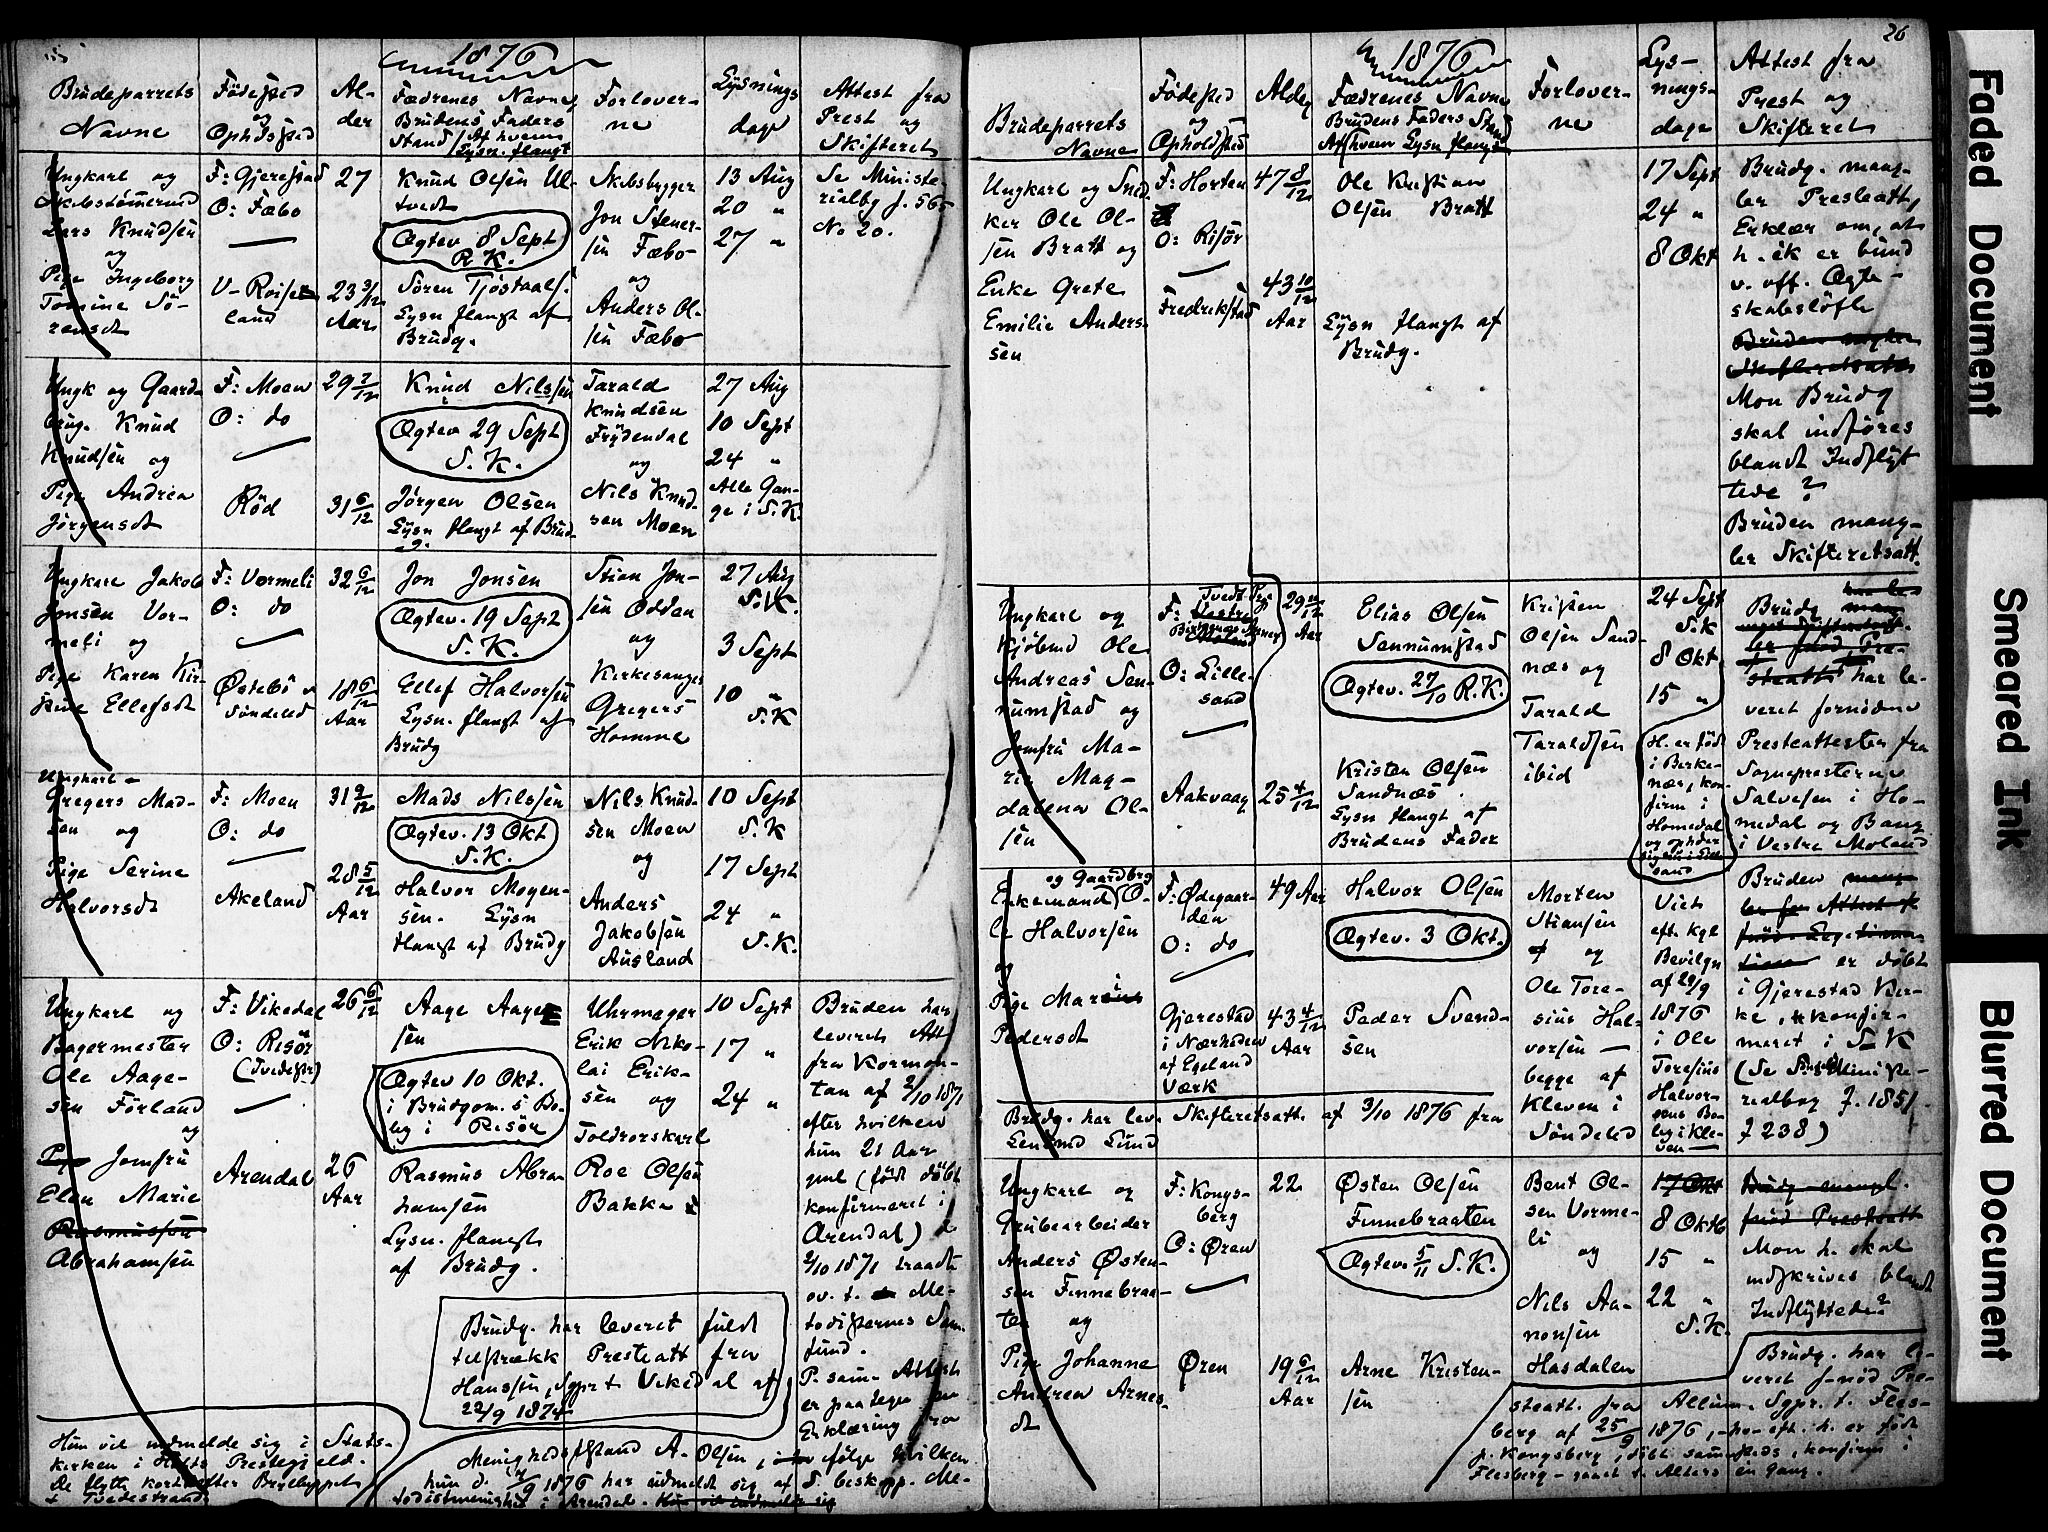 1876
Brudeparrets
Navne
Fødested
og
Opholdssted
Al-
der
Fædrenes Navne
Brudens Faders
Stand / Af hvem
Lysn. flangt
Forlover-
ne
Lysnings
dage
Attest fra
Prest og
Skifteret
Ungkarl og
Skibstømermd
Lars Knudsen
og
Pige Ingeborg
Tomine Sö-
rensdt
F: Gjerestad
O: Fæbo
V-Roise-
land
27
23 3/12
Aar
Knud Olsen Ul-
tvedt
Ogtev 8 Sept
R. K.
Sören Tjöstaals.
Lysn flangt af
Brudg.
Skibsbygger
Jon Stener-
sen Fæbo
og
Anders Ol-
sen Fæbo
13 Aug
20 "
27 "
Se Ministe-
rialbg f. 565
No 20.
Ungk og Gaard-
brug. Knud
Knudsen og
Pige Andrea
Jörgensdt
F: Moen
O: do
Röd
29 7/12
31 6/12
Knud Nilssen
Ogtev 29 Sept
S. K.
Jörgen Olsen
Lysn flangt af Brud-
g.
Tarald
Knudsen
Frydendal
og
Nils Knud-
sen Moen
27 Aug
10 Sept
24 "
Alle Gan-
ge i S. K.
Ungkarl Jakob
Jonsen Vor-
meli og
Pige Karen Kir-
stine Ellefsdt
F: Vormeli
O: do
Østebö v
Söndeled
32 6/12
18 6/12
Aar
Jon Jonsen
Ogtev. 19 Sept
S. K.
Ellef Halvorsen
Lysn. flangt af
Brudg
Stian Jon-
sen Odden
og
Kirkesanger
Gregers
Homme
27 Aug
S. K.
3 Sept
10 "
S. K
Ungkarl
Gregers Mad-
sen og
Pige Serine
Halvorsdt
F: Moen
O: do
Akeland
31 2/12
28 5/12
Aar
Mads Nilssen
Ogtev. 13 Okt
S. K.
Halvor Mogen-
sen. Lysn
flangt af Brudg
Nils Knud-
sen Moen
og
Anders
Jakobsen
Ausland
10 Sept
S. K
17 Sept
24 "
S. K.
Ungkarl og
Bagermester
Ole Aage-
sen Förland
og
Pige Jomfru
Elen Marie
Rasmussen
Abrahamsen
F: Vikedal
O: Risör
(Tvedestr)
Arendal
26 6/12
26
Aar
Aage Aage
sen
Ogtev 10 Okt.
i Brudgom. s Bo-
lig i Risör
Rasmus Abra
hamsen
Lysn. flangt
af Brudg.
Uhrmager
Erik Niko-
lai Erik-
sen og
Toldrorskarl
Roe Olsen
Bakka
10 Sept
17 "
24 "
Bruden har
leveret Att
fra Kormon-
tan af 2/10 1871
efter hvilken
hun 21 Aar
gml (födt döbt
konfirmeret i
Arendal) d
2/10 1871 traadt
ov. t. Me-
todisternes Sam-
fund.
P. sam. Attest
er paategn en
Erklæring fra
Brudg. har leveret fuldt
tilstrækk Presteatt fra
Hanssen, Sgprt Vikedal af
22/9 1874
Hun vil indmelde sig i Stats-
kirken i Holts Prestegjeld.
De flytte kort efter Brylluppet
t Tvedestrand
Menighedsforstand A. Olsen, ifølge hvilken
hun d. 4/9 1876 har udmeldt sig af d. biskopp. Me-
todistmenighed i Arendal. Hun vil indmelde sig
26
1876
Brudeparrets
Navne
Fødested
og
Opholdssted
Alder
Fædrenes Navne
Brudens Faders Stand
Af hvem Lysn flangt
Forlover-
ne
Lys-
nings-
dage
Attest fra
Prest og
Skifteret
Ungkarl og Sned
ker Ole Ol-
sen Bratt og
Enke Grete
Emilie Anders-
sen
F: Horten
O: Risör
Fredrikstad
47 8/12
43 10/12
Aar
Ole Kristian
Olsen Bratt
Lysn flangt af
Brudg.
17 Sept
24 "
8 Okt
Brudg. mang-
ler Presteatt,
Erklær om, at
h. ek er bund
v. off. Ogte-
skabslöfte
Bruden mgler
Skifteretsatt
Mon Brudg
skal indföres
blandt Indflyt
tede?
Bruden mang-
ler Skifteretsatt.
Ungkarl og
Kjöbmd Ole
Andreas Sen-
numstad og
Jomfru Ma-
rie Mag-
dalena Ol-
sen
O: Lille-
sand
Aakvaag
Aar
25 4/12
Elias Olsen
Sennumstad
Ogtev. 27/10 R. K.
Kristen Olsen
Sandnæs
Lysn flangt af
Brudens Fader
Kristen
Olsen Sand-
næs og
Tarald
Taraldsen
ibid
24 Sept
S. K
8 Okt
15 "
H. er föd
i Berke-
næs, kon-
firm i
Homedal
og ophder
sig nu i Lille
sand
Brudg
har le-
veret fornödne
Presteattester fra
Sogneprester
Salvesen i Ho-
medal og Bang
i Vestre Moland
og Gaardbrg
Enkemand O-
le Halvorsen
og
Pige Maren
Pedersdt
F: Ødegaar-
den
O: do
Gjerestad
i Nærheden
af Egeland
Værk
49 Aar
43 4/12
Aar
Halvor Olsen
Ogtev. 3 Okt.
Peder Svend-
sen
Morten
Stiansen
og
Ole Tore-
sius Hal-
vorsen —
begge af
Kleven i
Söndeled
Viet
eft. kgl
Bevilgn
af 29/9
1876
i Ole
Toresius
Halvor-
sens Bo-
lig i Kle-
ven —
Bruden
er döbt
i Gjerestad Kir-
ke, konfir-
meret i S. K
(Se Ministe-
rialbog f. 1851
f 238)
Brudg. har lev. Skifteretsatt. af 3/10 1876 fra
Lensmd Lund
Ungkarl og
Grubearbeider
Anders Østen-
sen Finnebraa-
ten og
Pige Johanne
Andrea Arnes-
dt
F: Kongs-
berg
O: Øren
Øren
22
19 6/12
Aar
Østen Olsen
Finnebraaten
Ogtev. 5/11 S. K.
Arne Kristen-
sen
Bent Ol-
sen Vorme-
li og
Nils Aa-
nonsen
Hasdalen
17 Okt
8 Oktb
15 "
22 "
S. K.
Brudg. mangl.
fnöd Presteatt
Mon h. skal
indskrives blandt
Indflyttede?
Brudg. har le-
veret f-nöd Pre-
steatt. fra Allum. Sgpr. t. Fles-
berg af 25/9 1876, hvoreft. h. er födt
p. Kongsberg, döbt sammesteds, konfirm i
Flesberg – gaaet t. Alters en Gang.
Faded Document
Smeared Ink
Blurred Document